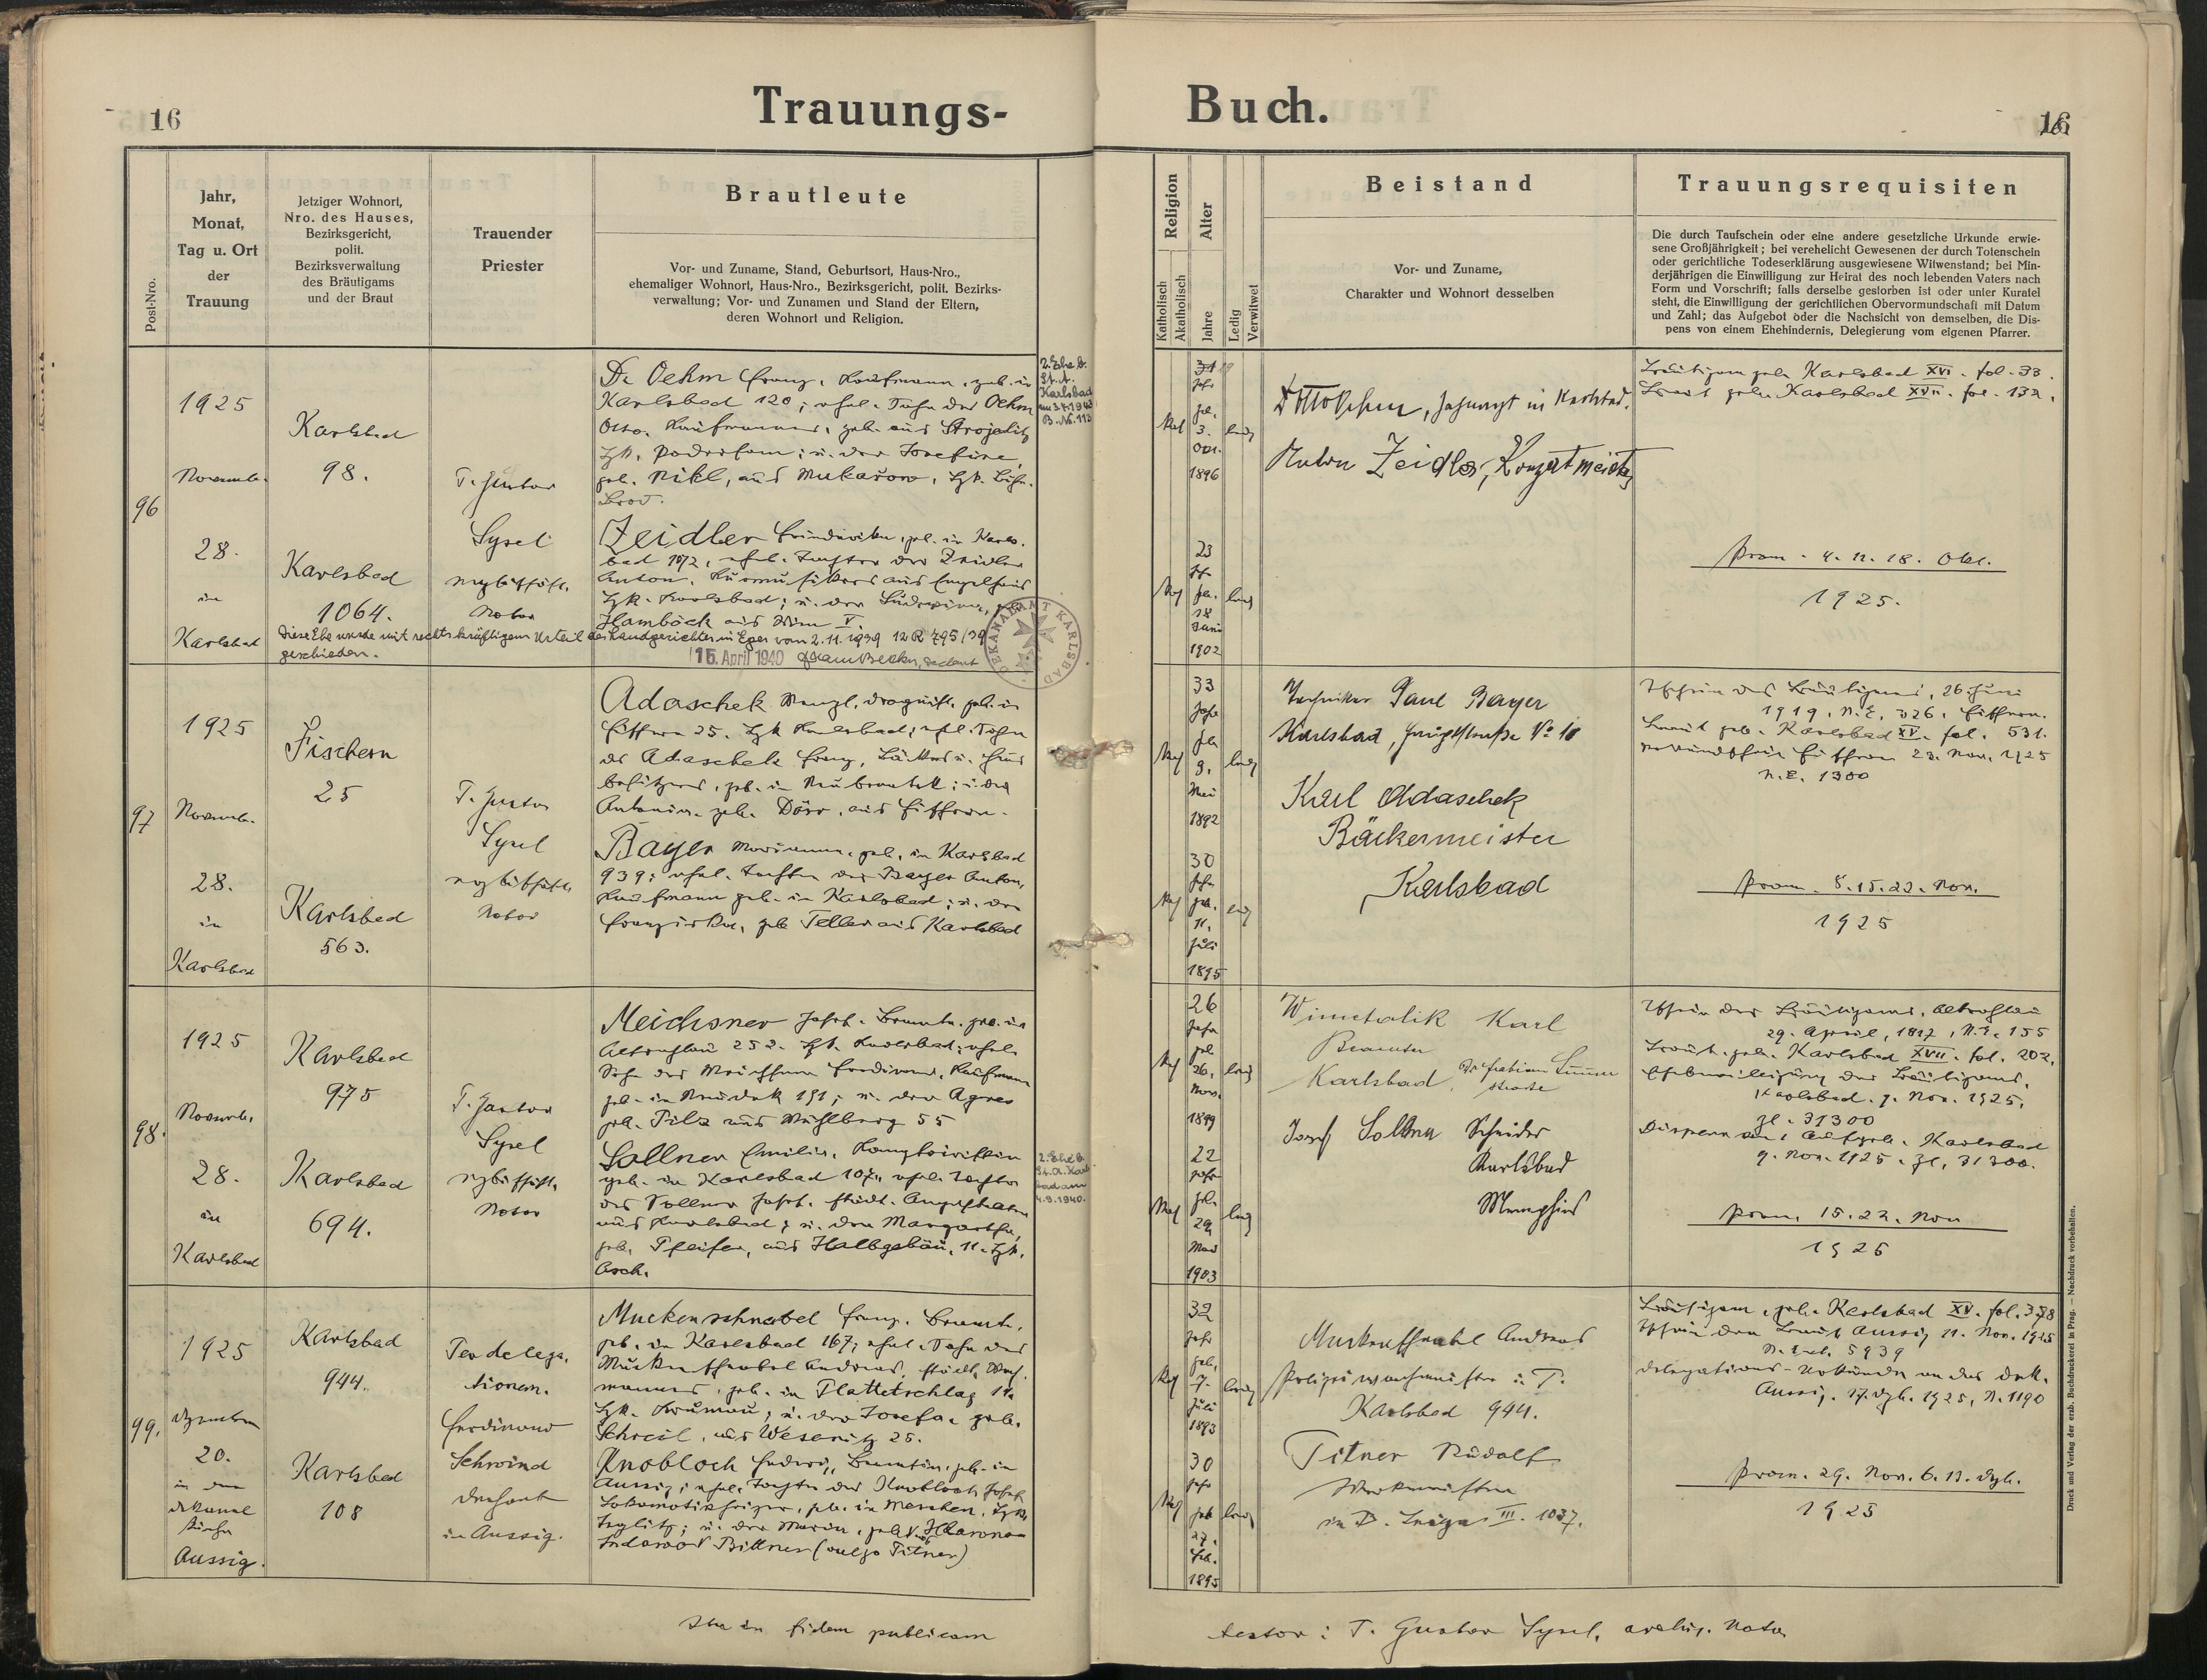 16
Trauungs-
Post-Nro.
Jahr,
Monat,
Tag u. Ort
der
Trauung
Jetziger Wohnort,
Nro. des Hauses,
Bezirksgericht,
polit.
Bezirksverwaltung
des Bräutigams
und der Braut
Trauender
Priester
Brautleute
Vor- und Zuname, Stand, Geburtsort, Haus-Nro.,
ehemaliger Wohnort, Haus-Nro., Bezirksgericht, polit. Bezirks-
verwaltung; Vor- und Zunamen und Stand der Eltern,
deren Wohnort und Religion.
96
1925
Novemb.
28.
in
Karlsbad
Karlsbad
98.
Karlsbad
1064.
T. Gustav
Sysel
erzbischöfl.
Notar
Dr Oehm Franz, Kaufmann, geb. in
Karlsbad 120; ehel. Sohn des Oehm
Otto, Kaufmannes, geb. aus
u. der Josefine,
geb. Nikl, aus Mukařow, Bzk. Böhm.
Brod.
Zeidler geb. in Karls-
bad ehel. Tochter des Zeidler
Anton, Kurmusikers aus Engelhaus
Bzk. Karlsbad; u. der
Hamböck aus Wien V.
Diese Ehe wurde mit rechtskräftigem Urteil des Landgerichtes in Eger vom 2.11.1939 12 R 795/39
geschieden.
15. April 1940
DEKANALAMT KARLSBAD
2. Ehe b.
St. A.
Karlsbad
B. Nr. 113
97
1925
Novemb.
28.
in
Karlsbad
Fischern
25
Karlsbad
563.
T. Gustav
Sysel
erzbischöfl.
Notar
Adaschek Wenzl, Drogist, geb. in
Fischern 25. Bzk Karlsbad; ehel. Sohn
des Adaschek Franz, Bäckers u. Haus
besitzers, geb. in u. der
Antonia, geb. Dörr, aus Fischern.
Bayer Marianne, geb. in Karlsbad
939; ehel. Tochter des Bayer Anton,
Kaufmann geb. in Karlsbad; u. der
Franziska, geb Teller aus Karlsbad
98.
1925
Novemb.
28.
in
Karlsbad
Karlsbad
975
Karlsbad
694.
T. Gustav
Sysel
erzbischöfl.
Notar
Meichsner Josef, Beamte, geb. in
Altrohlau 252. Bzk. Karlsbad; ehel.
Sohn des Meichsner Ferdinand, Kaufmann
geb. in Neudek 191; u. der Agnes
geb. Pilz aus Mühlberg 55
Sollner Emilie, Kontoristin
geb. in Karlsbad ehel. Tochter
des Sollner Josef, städt. Angestellten
aus Karlsbad; u. der Margarethe,
geb. Pfeifer, aus Halbgebäu, 11. Bzk.
Asch.
2. Ehe b.
St. A. Karls
bad am
4.9.1940.
99.
1925
Dezember
20.
in der
Dekanal
kirche
Aussig.
Karlsbad
944.
Karlsbad
108
Per delega-
tionem.
Ferdinand
Schwind
Dechant
in Aussig.
Muckenschnabel Franz, Beamte,
geb. in Karlsbad 167; ehel. Sohn des
Muckenschnabel Andreas, städt. Wach-
mannes, geb. in Plattetschlag 11.
Bzk. Krumau; u. der Josefa, geb.
aus Weseritz 25.
Knobloch Hedwig, Beamtin, geb. in
Aussig; ehel. Tochter des Knobloch Josef,
Lokomotivheizer, geb. in Bzk.
Teplitz; u. der Marie, geb.
Bittner (vulgo Titner)
Ita in fidem publicam
Buch.
16
Religion
Katholisch
Akatholisch
Alter
Jahre
Ledig
Verwitwet
Beistand
Vor- und Zuname,
Charakter und Wohnort desselben
Trauungsrequisiten
Die durch Taufschein oder eine andere gesetzliche Urkunde erwie-
sene Großjährigkeit; bei verehelicht Gewesenen der durch Totenschein
oder gerichtliche Todeserklärung ausgewiesene Witwenstand; bei Min-
derjährigen die Einwilligung zur Heirat des noch lebenden Vaters nach
Form und Vorschrift; falls derselbe gestorben ist oder unter Kuratel
steht, die Einwilligung der gerichtlichen Obervormundschaft mit Datum
und Zahl; das Aufgebot oder die Nachsicht von demselben, die Dis-
pens von einem Ehehindernis, Delegierung vom eigenen Pfarrer.
Kat
Jahr
geb.
3.
1896
ledig
Kat
23
Jah
geb.
18
Juni
1902
ledig
Dr Otto Oehm, Zahnarzt in Karlsbad.
Anton Zeidler, Konzertmeister
Bräutigam geb. Karlsbad XVI. fol. 33.
Braut geb. Karlsbad XVII. fol. 132.
Prom. 4. 11. 18. Okt.
1925.
Kat
33
Jahr
geb
9.
Mai
1892
ledig
Kat
30
Jahr
geb.
11.
Juli
1895
ledig
Techniker Paul Bayer
Karlsbad, Hauptstraße No 10
Karl Adaschek
Bäckermeister
Karlsbad
Tschein des Bräutigams, 26. Juni
1919, N.E. 326. Fischern.
Braut geb. Karlsbad XV. fol. 531.
Verkündschein Fischern 23. Nov. 1925
N.E. 1300
Prom. 8. 15. 22. Nov.
1925
Kat
26
Jahr
geb
26.
Nov.
1899
ledig
Kat
22
Jahr
geb.
29
1903
ledig
Karl
Beamter
Karlsbad,
Josef Sollner Schneider
Karlsbad
Memphis
Tschein des Bräutigams, Altrohlau
29. April, N.E. 155
Braut geb. Karlsbad XVII. fol. 202.
Ehebewilligung des Bräutigams,
Karlsbad. 9. Nov. 1925,
Zl. 31300
Dispens an 1 Aufgeb. Karlsbad
9. Nov. 1925. Zl. 31300.
Prom. 15. 22. Nov
1925
Kat
32
Jahr
geb.
7.
Juli
1893
ledig
Kat
30
Jahr
geb
27.
Feb.
1895
ledig
Muckenschnabel Andreas
Polizeiwachmeister i. P.
Karlsbad 944.
Titner Rudolf
Werkmeister
in III. 1037.
Bräutigam, geb. Karlsbad XV. fol. 378
Tschein der Braut Aussig 11. Nov. 1925
N. Exh. 5939
Delegations-Urkunde an das Dek.
Aussig. 17. Dzb. 1925, N. 1190
Prom. 29. Nov. 6. 13. Dzb.
1925
testor: T. Gustav Sysel, archiep. Notar
Druck und Verlag der erzb. Buchdruckerei in Prag. — Nachdruck vorbehalten.